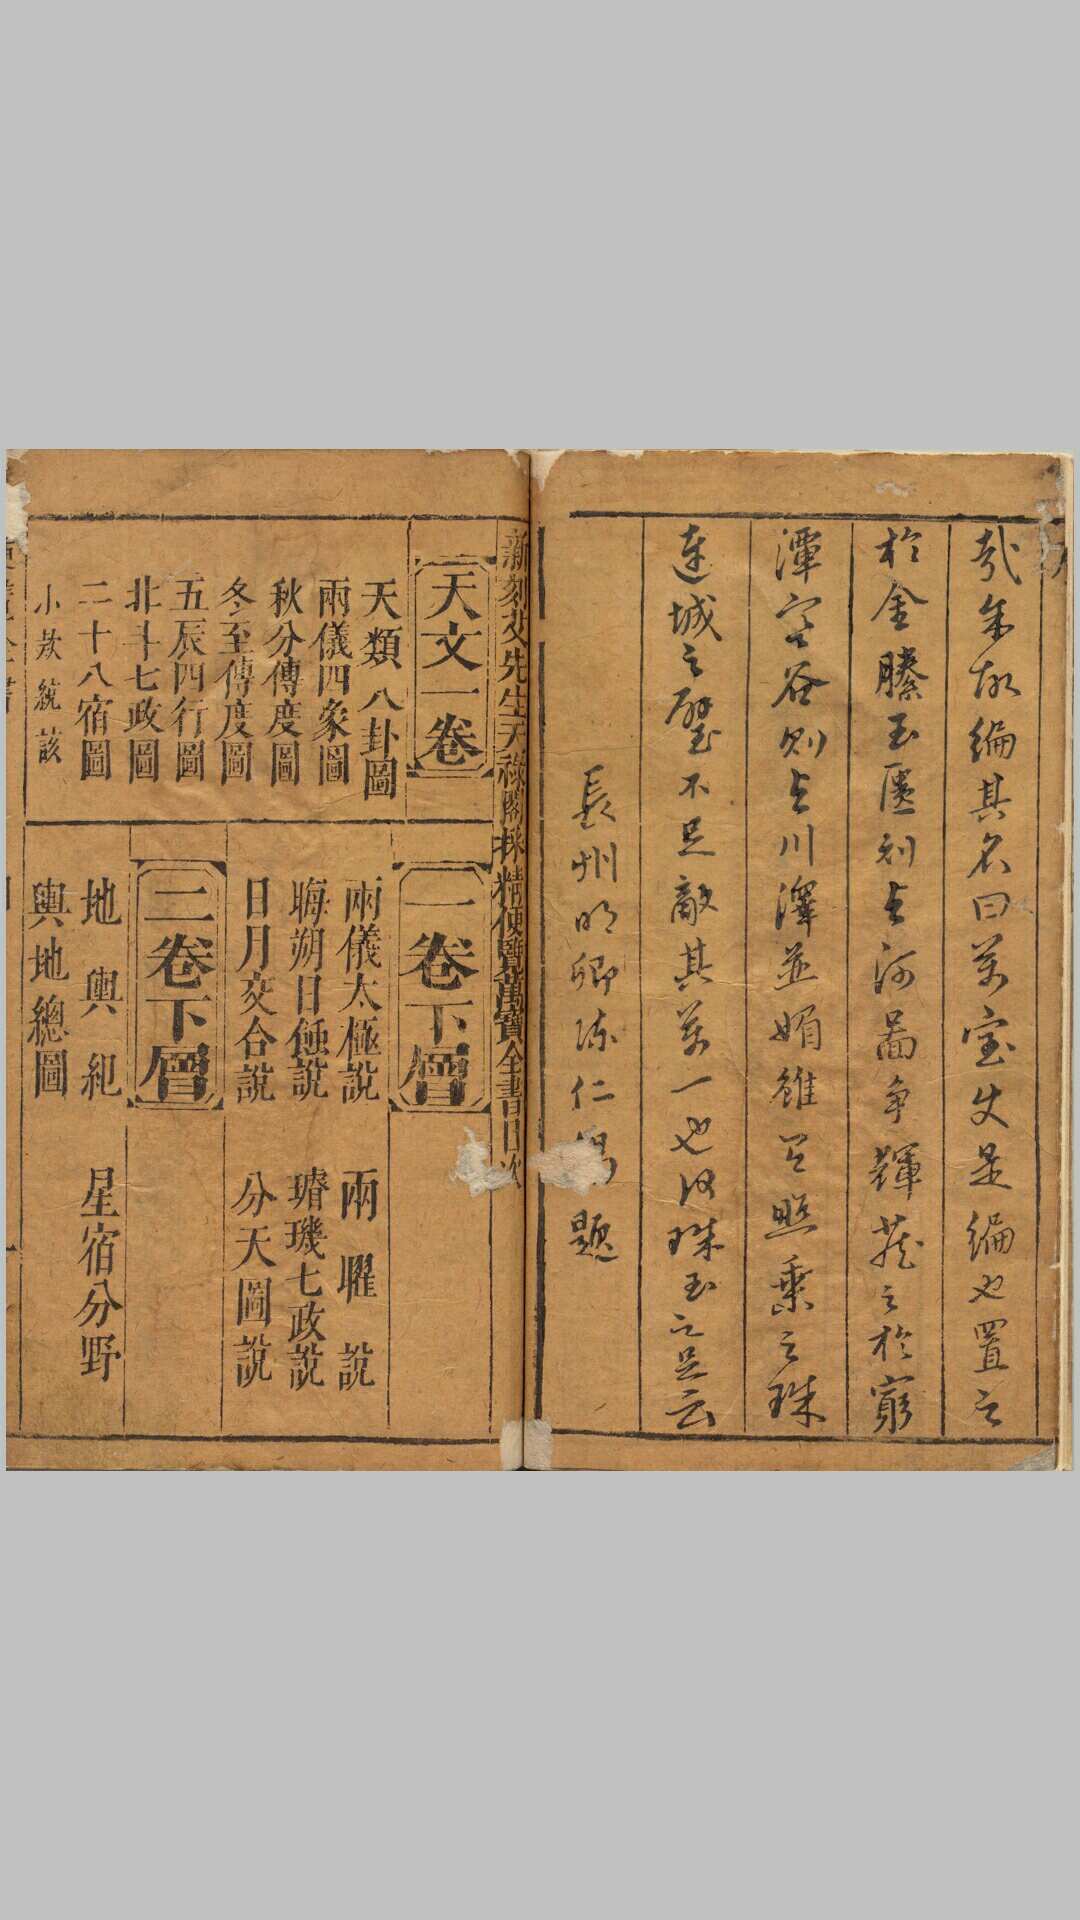 哉余故編其名曰萬宝夫是編也置之
於金縢玉匱則与河啚争輝藏之於窮
潭空谷則与川澤並媚雖照乘之珠
連城之璧不足敵其萬一也汝珠玉之足云
長州明卿陳仁錫題
新刻艾先生天祿閣採精便覽萬寶全書目次
天文一卷
天類八卦圖
兩儀四象圖
秋分傳度圖
冬至傳度圖
五辰四行圖
北斗七政圖
二十八宿圖
小款統該
一卷下層
兩儀太極說 兩曜說
晦朔日蝕說 璿璣七政說
日月交合說 分天圖說
二卷下層
地輿紀 星宿分野
輿地總圖